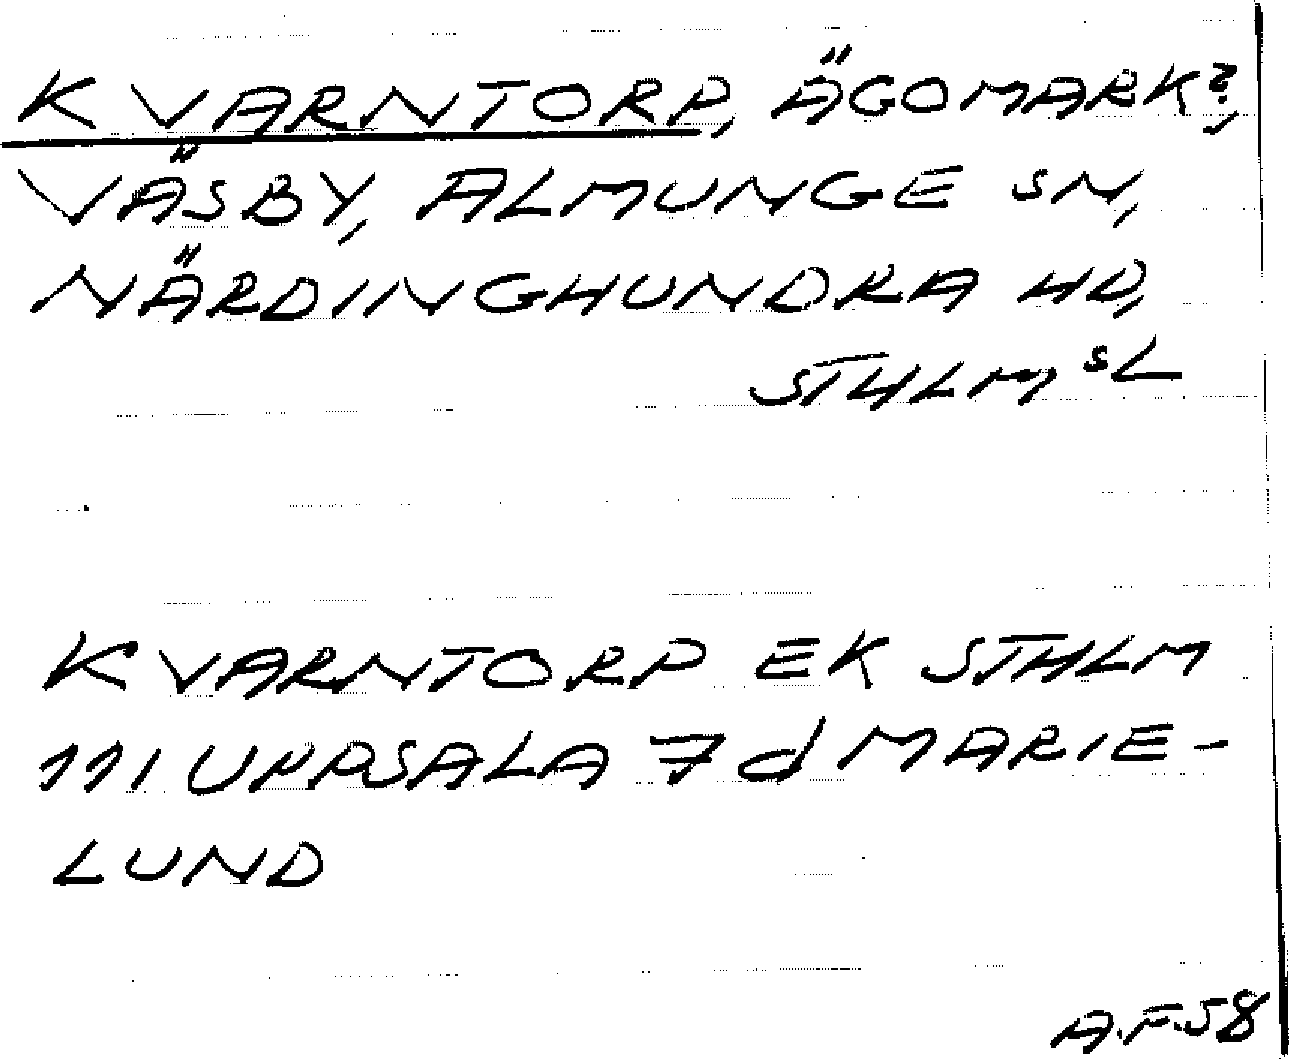 KVARNTORP, ÄGOMARK?,
VÄSBY, ALMUNGE SN,
NÄRDINGHUNDRA HD,
STHLM SL
KVARNTORP EK STHLM
111 UPPSALA 7d MARIE-
LUND
A.F.58